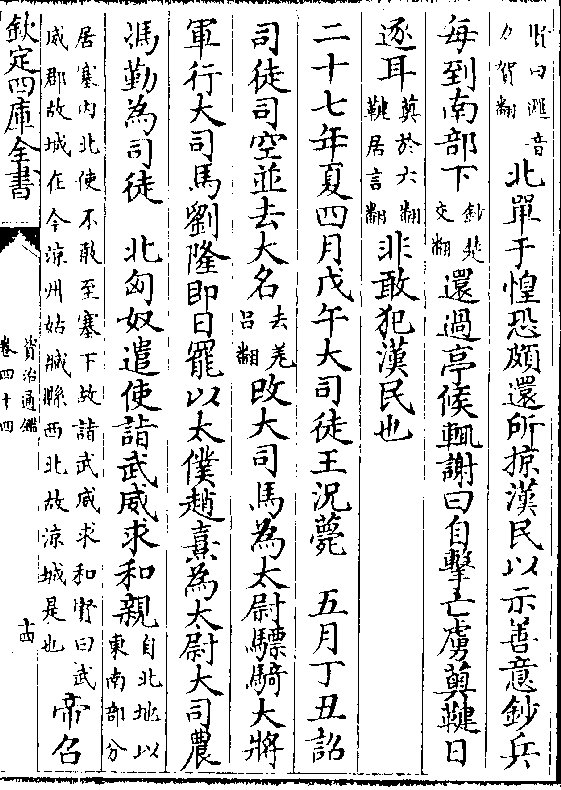 賢曰漚音力賀翻北單于惶恐頗還所掠漢民以示善意鈔兵
每到南部下鈔楚交翻還過亭候輒謝曰自擊亡虜薁鞬日
逐耳薁於六翻鞬居言翻非敢犯漢民也
二十七年夏四月戊午大司徒王況薨 五月丁丑詔
司徒司空並去大名去羌呂翻改大司馬為太尉驃騎大將
軍行大司馬劉隆即日罷以太僕趙憙為太尉大司農
馮勤為司徒 北匈奴遣使詣武威求和親自北地以東南部分
居塞內北使不敢至塞下故詣武威求和賢曰武威郡故城在今涼州姑臧縣西北故涼城是也帝召
欽定四庫全書
資治通鑑
卷四十四
十四